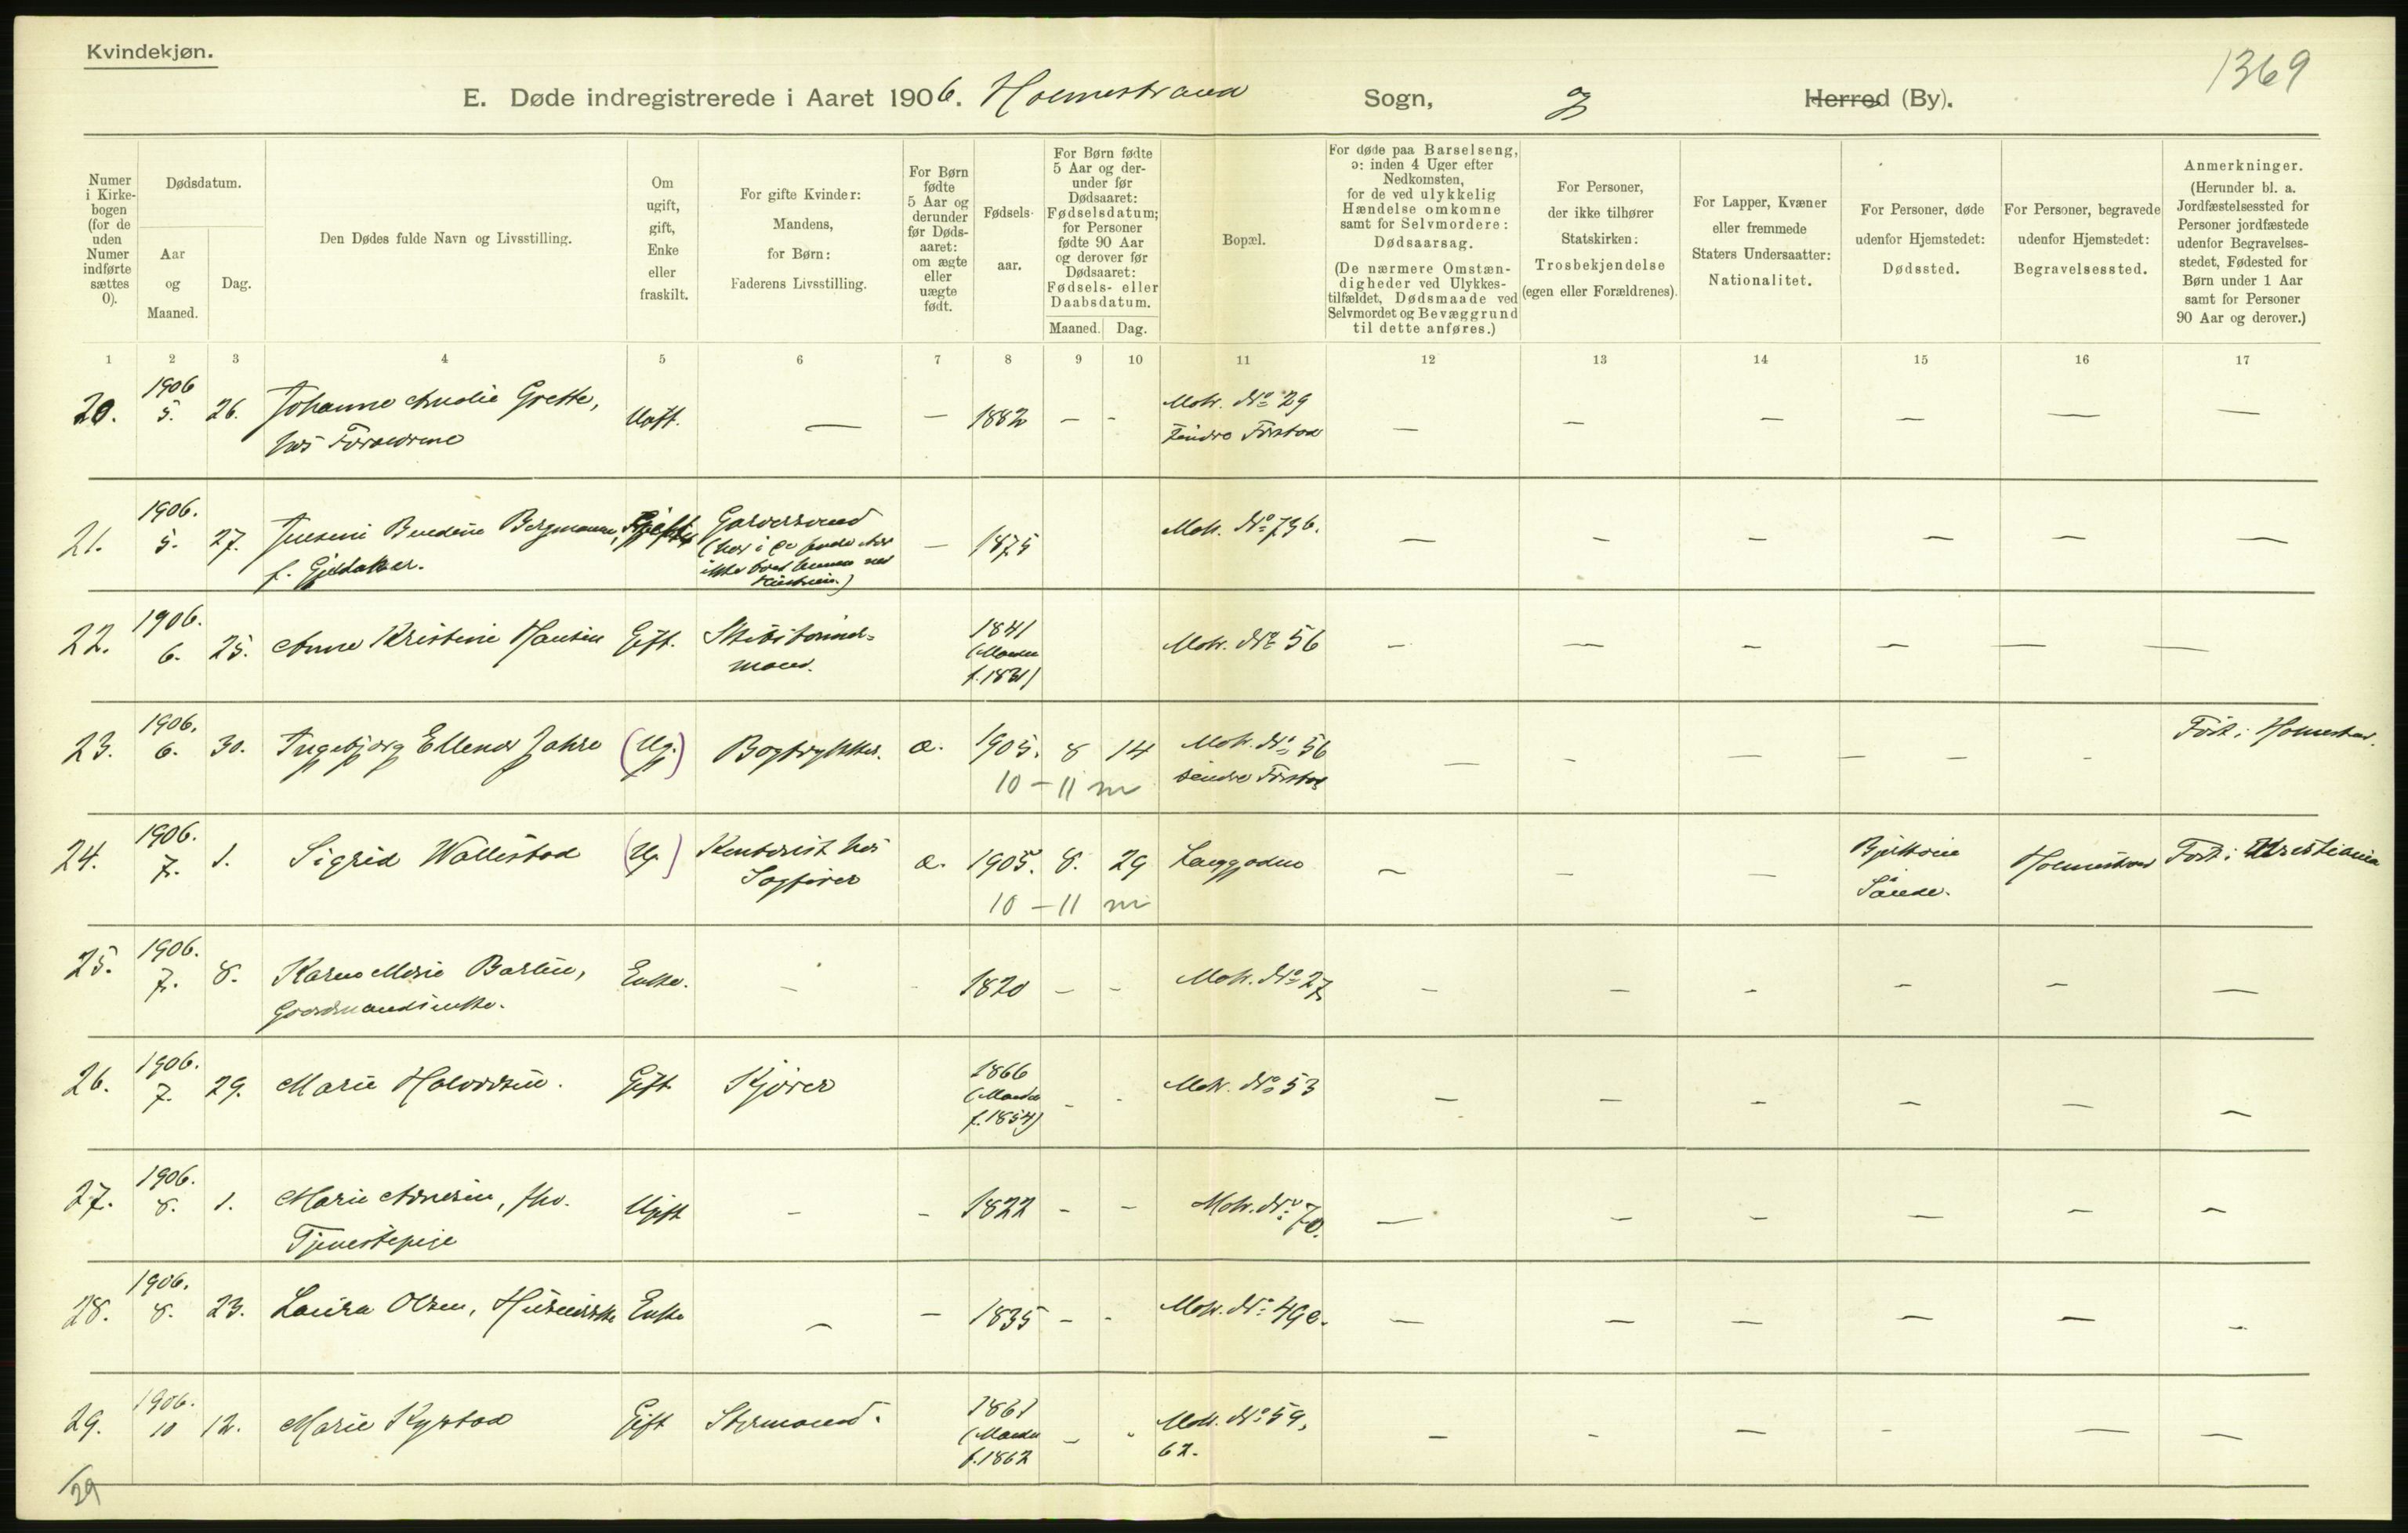 Kvindekjøn.
1369
E. Døde indregistrerede i Aaret 1906. Holmestrand Sogn, og Herred (By).
Numer i Kirkebogen (for de uden Numer indførte sættes 0).
Dødsdatum.
Aar og Maaned.
Dag.
Den Dødes fulde Navn og Livsstilling.
Om ugift, gift, Enke eller fraskilt.
For gifte Kvinder: Mandens, for Børn: Faderens Livsstilling.
For Børn fødte 5 Aar og derunder før Dødsaaret: om ægte eller uægte født.
Fødselsaar.
For Børn fødte 5 Aar og derunder før Dødsaaret: Fødselsdatum; for Personer fødte 90 Aar og derover før Dødsaaret: Fødsels- eller Daabsdatum.
Maaned. Dag.
Bopæl.
For døde paa Barselseng, ɔ: inden 4 Uger efter Nedkomsten, for de ved ulykkelig Hændelse omkomne samt for Selvmordere: Dødsaarsag.
(De nærmere Omstændigheder ved Ulykkestilfældet, Dødsmaade ved Selvmordet og Bevæggrund til dette anføres.)
For Personer, der ikke tilhører Statskirken: Trosbekjendelse (egen eller Forældrenes).
For Lapper, Kvæner eller fremmede Staters Undersaatter: Nationalitet.
For Personer, døde udenfor Hjemstedet: Dødssted.
For Personer, begravede udenfor Hjemstedet: Begravelsessted.
Anmerkninger.
(Herunder bl. a. Jordfæstelsessted for Personer jordfæstede udenfor Begravelsesstedet, Fødested for Børn under 1 Aar samt for Personer 90 Aar og derover.)
1 2 3 4 5 6 7 8 9 10 11 12 13 14 15 16 17
20. 1906 5. 26. Johanne Amalie Grette, Ugift. — — 1882 - - Matr. No 29 — — — — — —
hos Forældrene søndre Forstad
21. 1906. 5. 27. Bergmann, Gift Garversvend — 1875 Matr. No 796. — — — — — —
f.
22. 1906. 6. 25. Anne Kristine Hansen Gift. 1841 Matr. No 56 — — — — — —
(Manden f. 1821)
23. 1906. 6. 30. Ingebjørg Ellenor Jahre (Ug.) Bogtrykker. æ. 1905. 8 14 Matr. No 56 — — — — - Født i Holmestrand.
10 - 11 m søndre Forstad
24. 1906. 7. 1. Sigrid Wallestad (Ug.) Kontorist hos æ. 1905. 8. 29 Langgaden — — — Holmestrand Født i Kristiania
Sagfører Sande.
10 - 11 m
25. 1906. 7. 8. Karen Marie Enke. - - 1820 - - Matr. No 27 - - - - - —
Gaardmandsenke.
26. 1906. 7. 29. Marie Halvorsen. Gift Kjører 1866 - - Matr. No 53 — — — — — —
(Manden f. 1854)
27. 1906. 8. 1. Marie Ugift - - 1822 - - Matr. No 70. — — — — — —
Tjenestepige
28. 1906. 8. 23. Laura Olsen, Enke — — 1835 - - Matr. No 49 — — — — — -
29. 1906. 10 12. Marie Gift Styrmand. 1861 - - Matr. No 59, — - — - — —
(Manden f. 1862 62.
/29